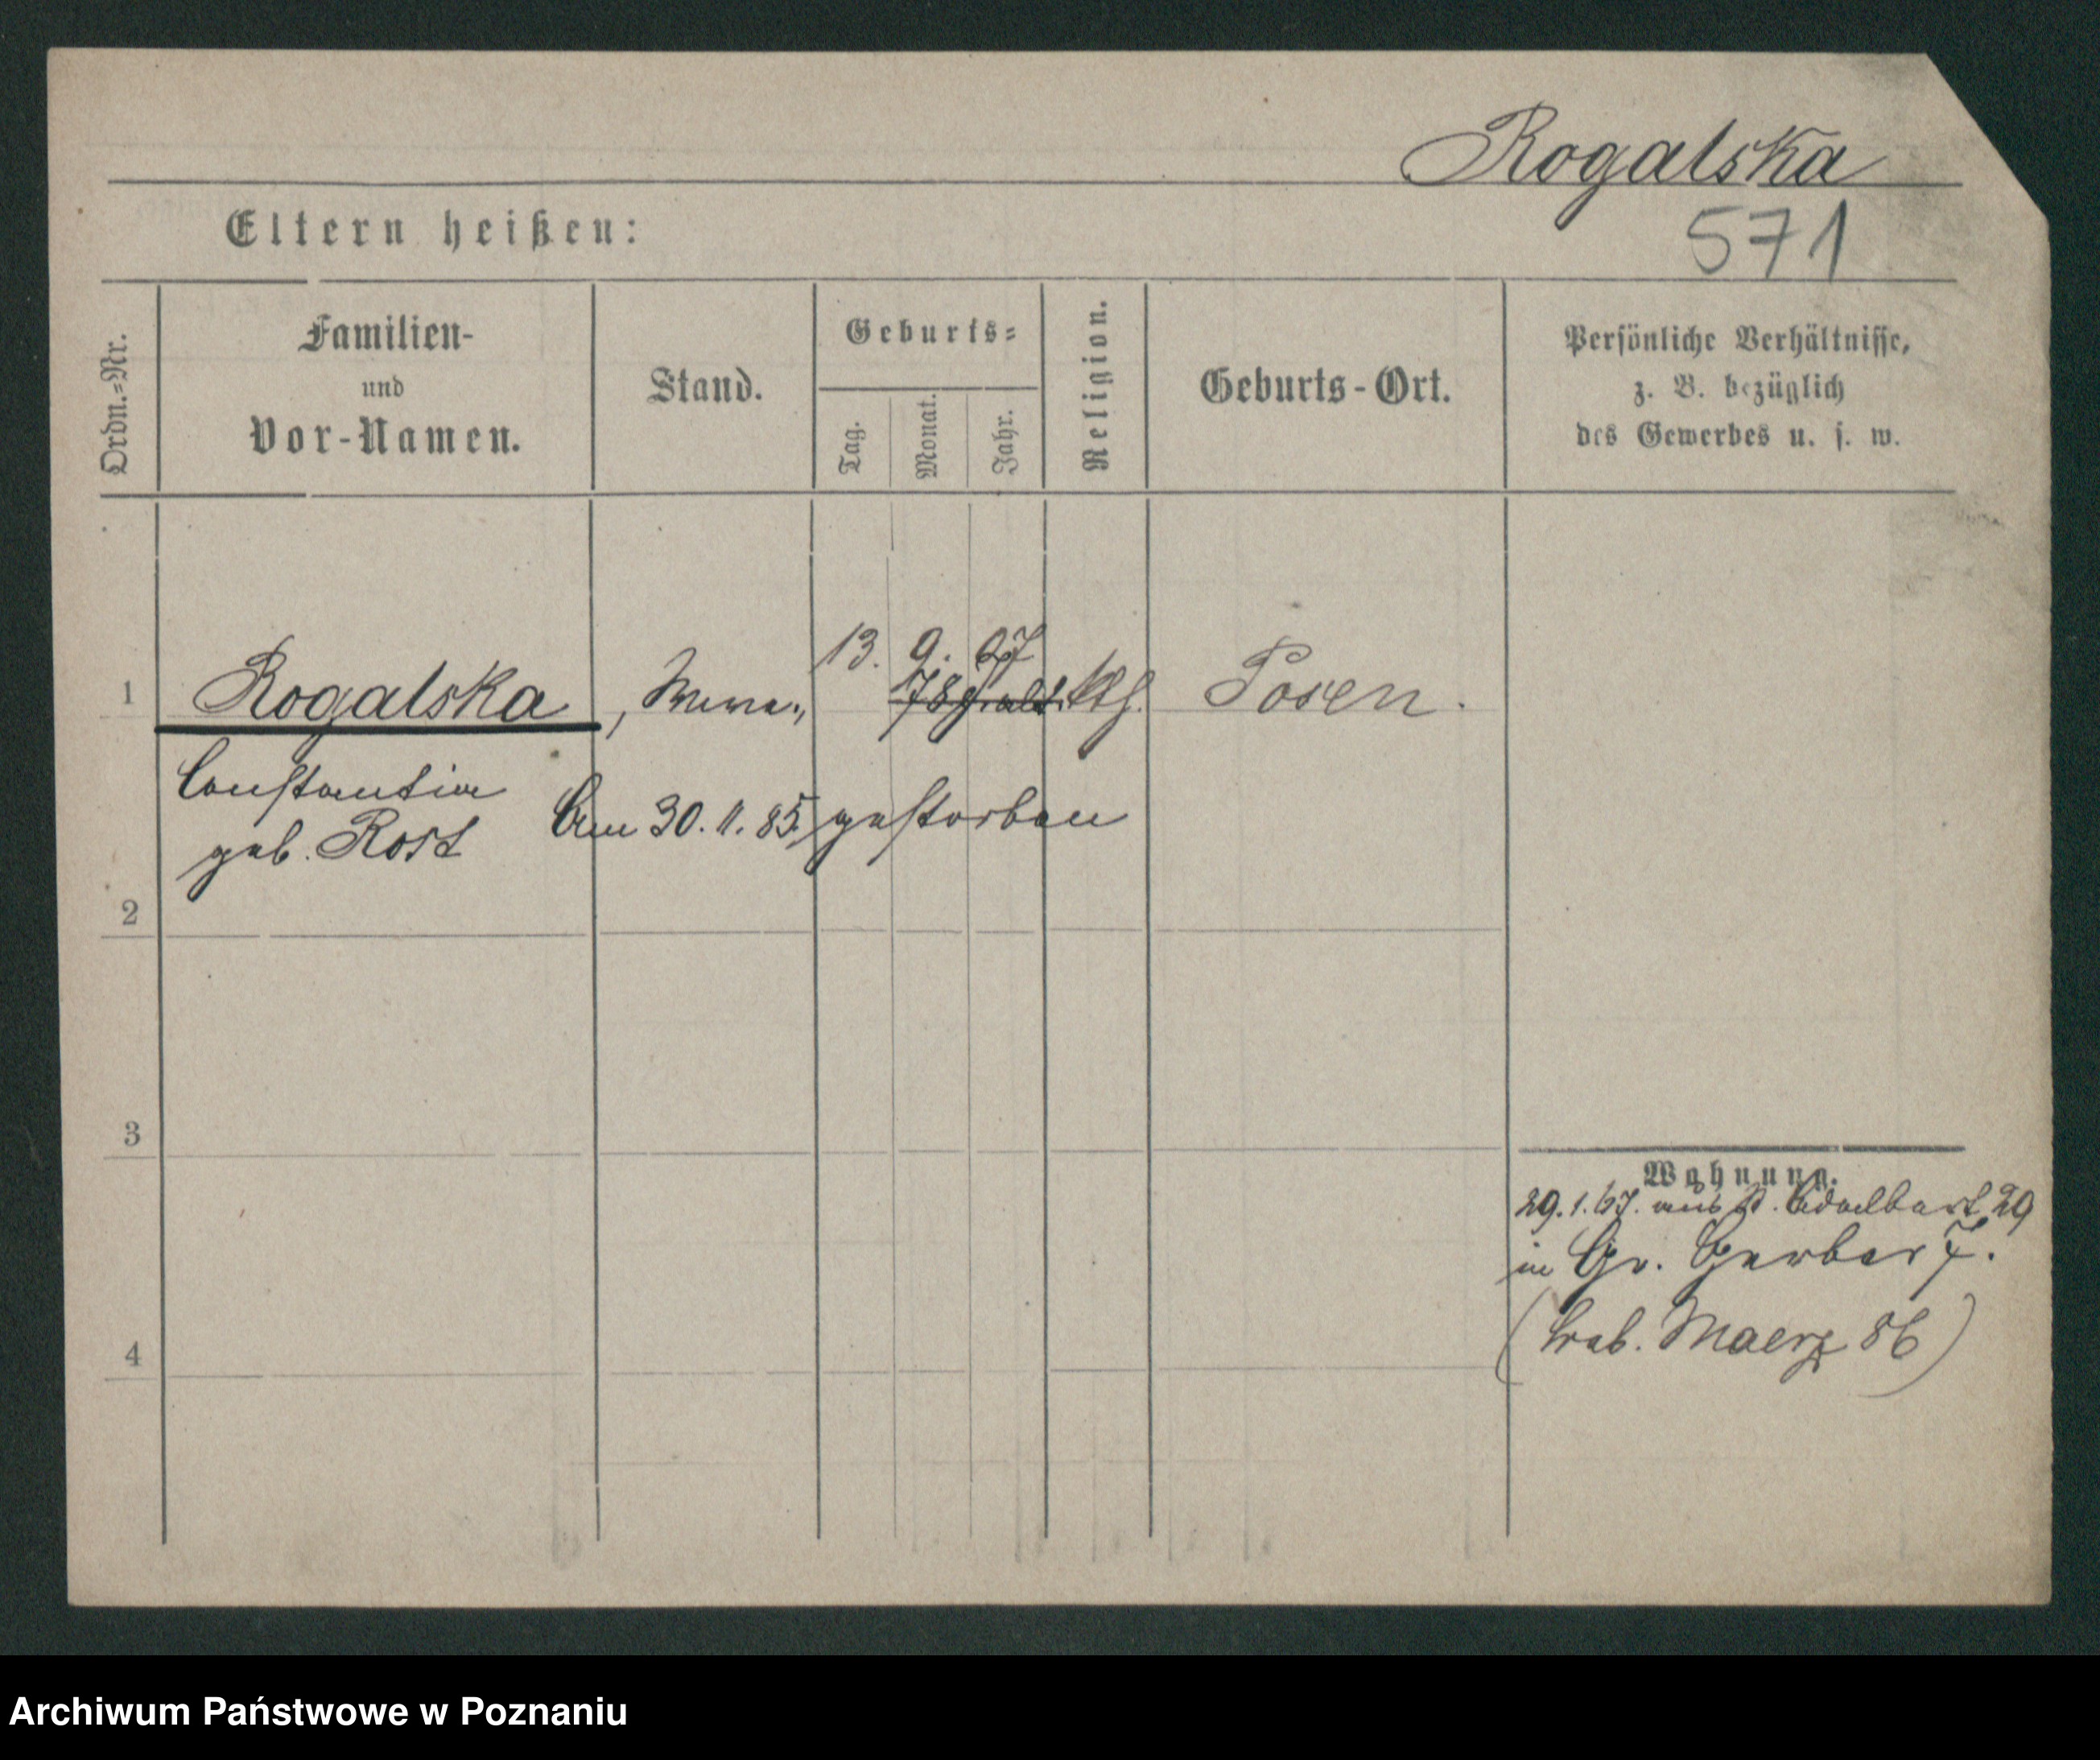 Rogalska
571
Eltern heißen:
Ordn.=Nr.
Familien-
und
Vor-Namen.
Stand.
Geburts=
Tag.
Monat.
Jahr.
Religion.
Geburts-Ort.
Persönliche Verhältnisse,
z. B. bezüglich
des Gewerbes u. s. w.
13. 9. 67
1 Rogalska, Wwe., 78 J. alt. kth. Posen.
Constantia
geb. Rost
Am 30. 11. 85. gestorben
2
3
4
Wohnung.
29. 1. 67. aus St. Adalbert 29
in Gr. Gerber 7.
Maerz 86)
Archiwum Państwowe w Poznaniu